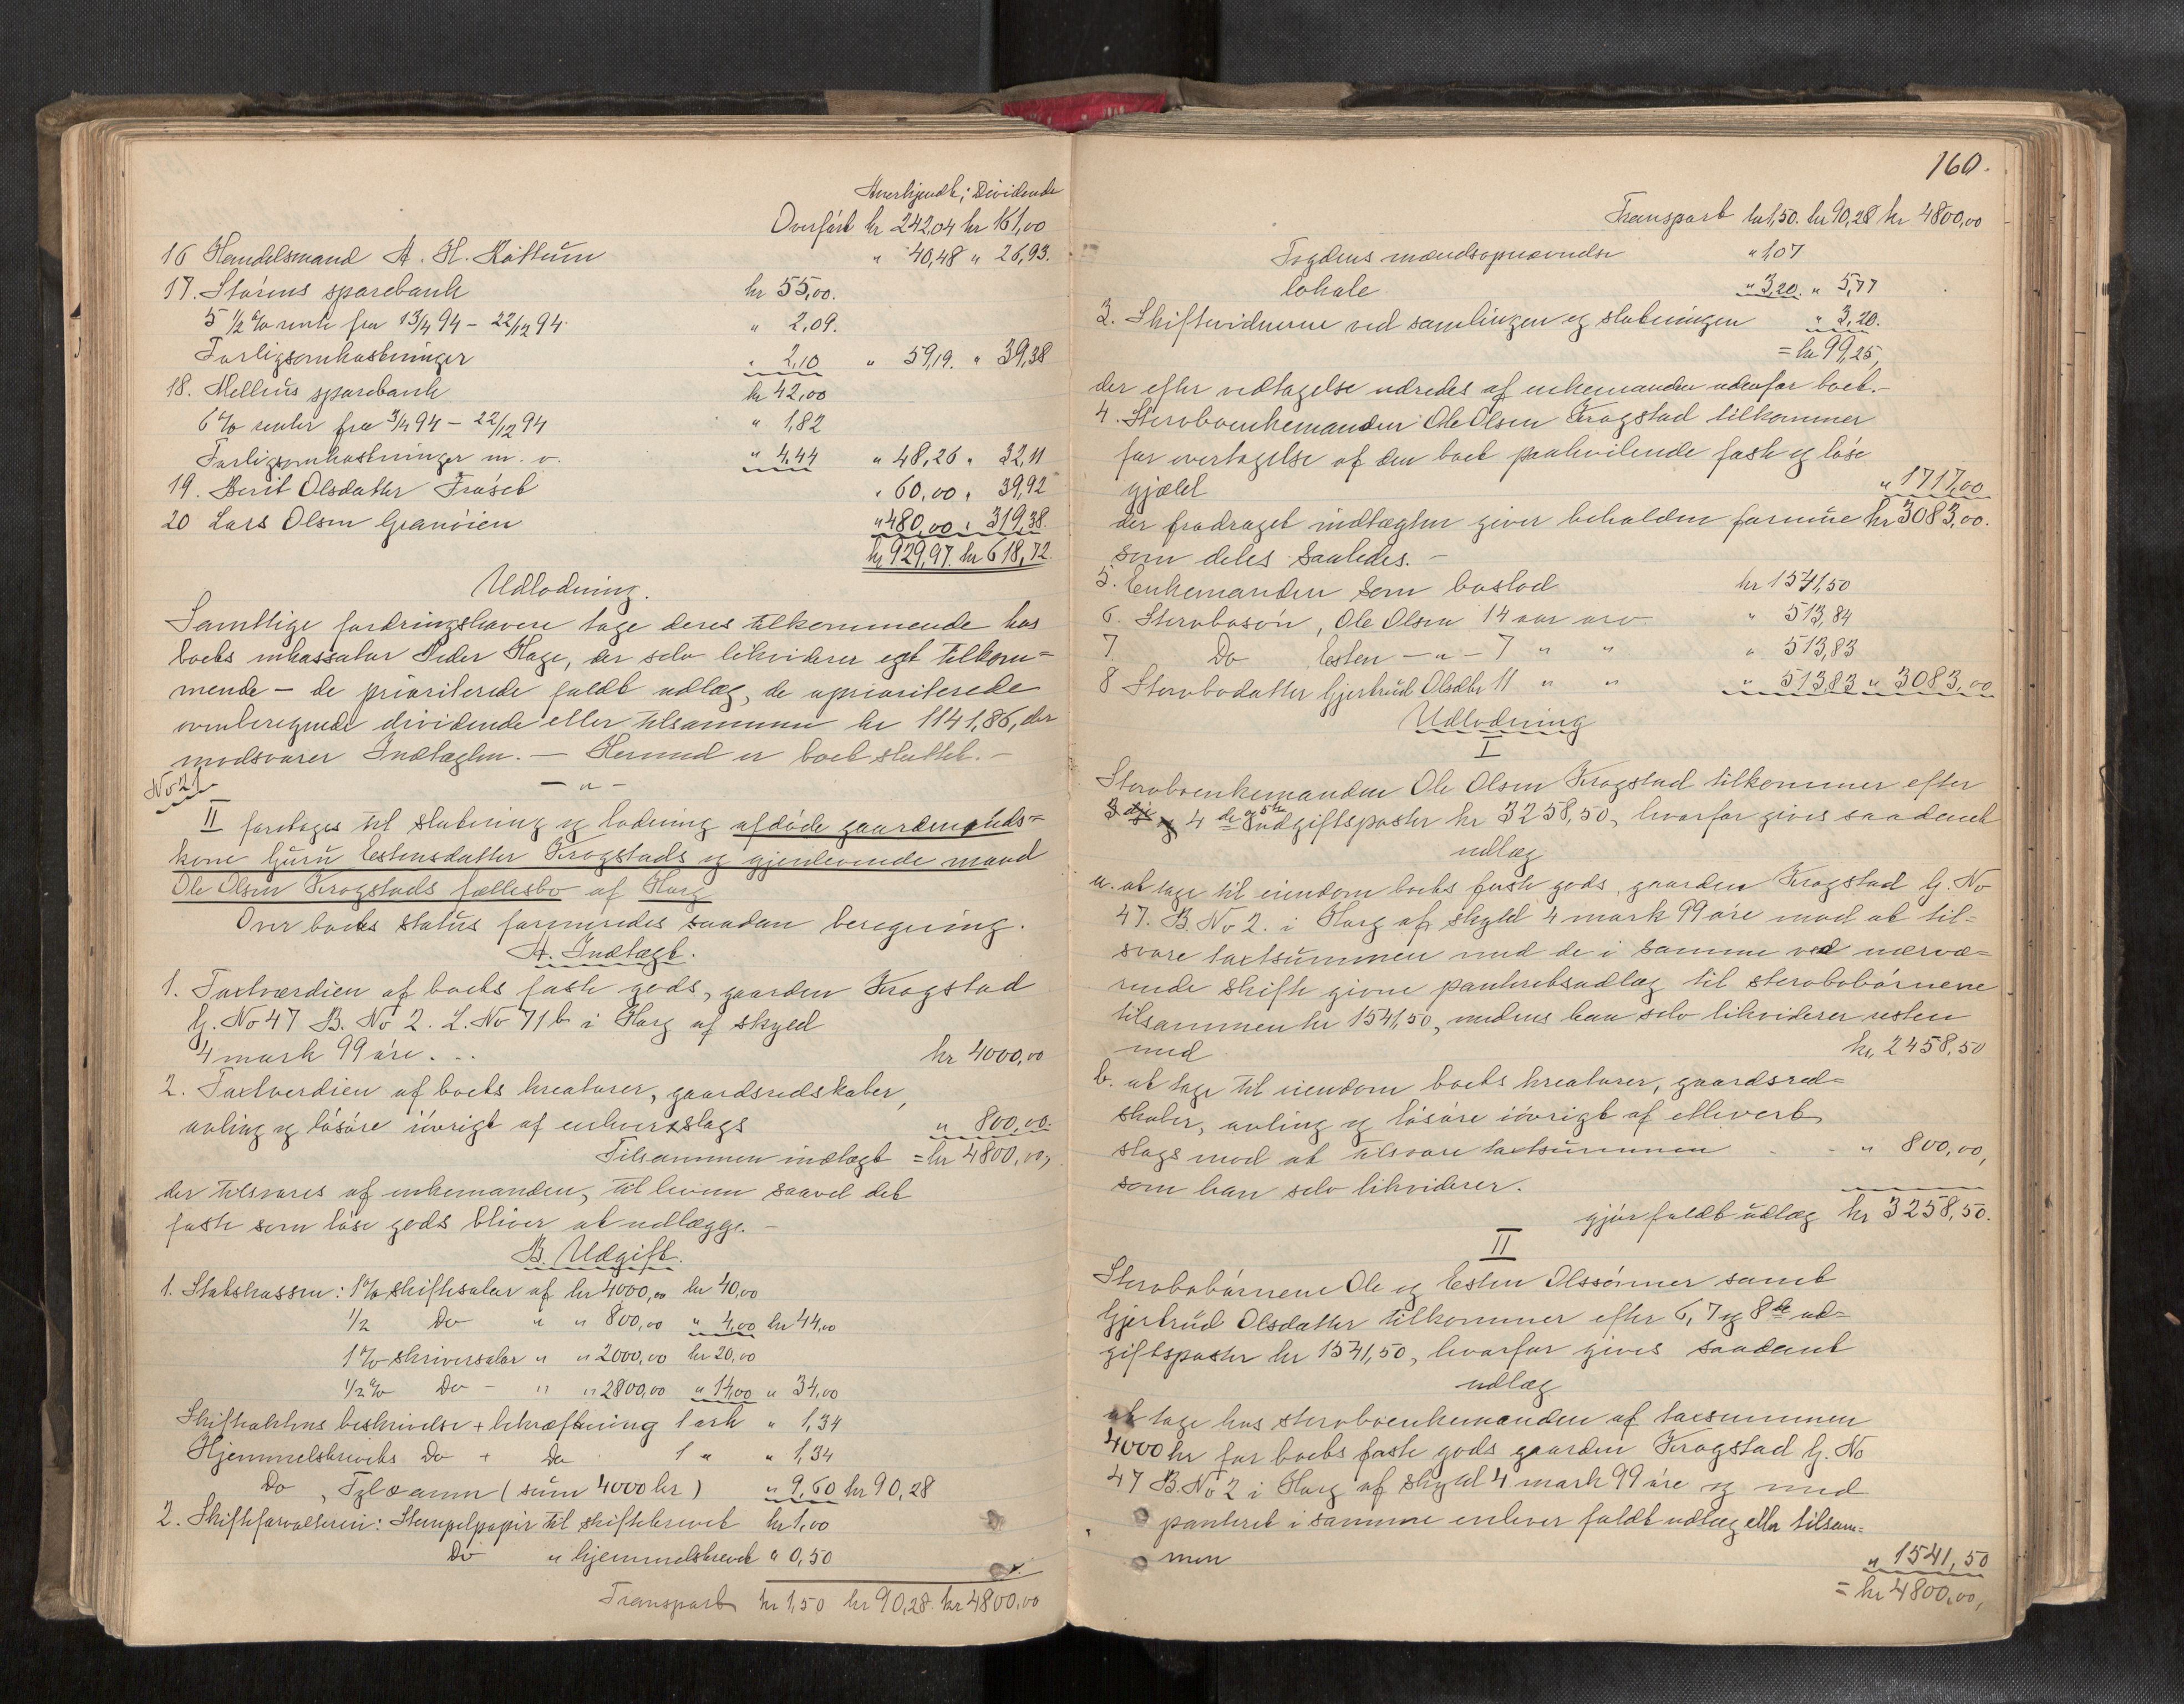 Anerkjendt; Dividende
Overført kr 242,04 kr 161,00
16 Handelsmand A. H. Kottum " 40,48 " 26,93.
17. Størens sparebank kr 55,00.
5 1/2 % rente fra 13/4 94 – 22/12 94. " 2,09.
Forligsomkostninger " 2,10 " 59,19. " 39,38
18. Melhus sparebank kr 42,00
6 % renter fra 3/4 94 – 22/12 94 " 1,82
Forligsomkostninger m. v. " 4,44 " 48,26 " 32,11
19. Berit Olsdatter Frøset " 60,00 " 39,92
20 Lars Olsen Granøien " 480,00 " 319,38.
kr 929,97. kr 618,72.
Udlodning.
Samtlige fordringshavere tage deres tilkommende hos
boets inkassator Peder Hage, der selv likviderer eget tilkom=
mende – de prioriterede fuldt udlæg, de uprioriterede
ovenberegnede dividende eller tilsammen kr 1141,86, der
modsvarer Indtægten. – Hermed er boet sluttet. –
No 21
– " –
II foretoges til slutning og lodning afdøde gaardmands=
kone Guru Estensdatter Krogstads og gjenlevende mand
Ole Olsen Krogstads fællesbo af Horg
Over boets status formeredes saadan beregning.
A. Indtægt.
1. Taxtværdien af boets faste gods, gaarden Krogstad
G. No 47 B. No 2. L. No 71b i Horg af skyld
4 mark 99 øre. . . kr 4000,00
2. Taxtverdien af boets kreaturer, gaardsredskaber,
avling og løsøre iøvrigt af enhver slags " 800,00.
Tilsammen indtægt = kr 4800,00,
der tilsvares af enkemanden, til hvem saavel det
faste som løse gods bliver at udlægge. –
B. Udgift.
1. Statskassen: 1 % skiftesalær af kr 4000,00 kr 40,00
1/2 Do " " 800,00 " 4,00 kr 44,00
1 % skriversalær " " 2000,00 kr 20,00
1/2 % Do – " " 2800,00 " 14,00 " 34,00
Skifteaktens beskrivelse + bekræftning 1 ark " 1,34
Hjemmelsbrevets Do + Do 1 " " 1,34
Do , Tgl (sum 4000 kr) " 9,60 kr 90,28
2. Skifteforvalteren: Stempelpapir til skiftebrevet kr 1,00
Do " hjemmelsbrevet " 0,50
Transport kr 1,50 kr 90,28. kr 4800,00
160.
Transport kr 1,50. kr 90,28 kr 4800,00
Fogdens mændsopnævnelse " 1,07
lokale " 3,20. " 5,77
3. Skiftevidnerne ved samlingen og slutningen " 3,20.
= kr 99,25,
der efter vedtagelse udredes af enkemanden udenfor boet. –
4. Sterboenkemanden Ole Olsen Krogstad tilkommer
for overtagelse af den boet paahvilende faste og løse
gjæld " 1717,00
der fradraget indtægten giver beholden formue kr 3083,00.
som deles saaledes. –
5. Enkemanden som boslod kr 1541,50
6. Sterbosøn, Ole Olsen 14 aar arv " 513,84
7. Do Esten – " – 7 " " " 513,83
8 Sterbodatter Gjertrud Olsdtr 11 " " " 513,83 " 3083,00
Udlodning
I
Sterboenkemanden Ole Olsen Krogstad tilkommer efter
4de og 5te Udgiftsposter kr 3258,50, hvorfor gives saadant
udlæg
a. at tage til eiendom boets faste gods, gaarden Krogstad G. No
47. B. No 2. i Horg af skyld 4 mark 99 øre mod at til=
svare taxtsummen med de i samme ved nærvæ=
rende skifte givne panteretsudlæg til sterbobørnene
tilsammen kr 1541,50, medens han selv likviderer resten
med kr. 2458,50
b. at tage til eiendom boets kreaturer, gaardsred=
skaber, avling og løsøre iøvrigt af ethvert
slags mod at tilsvare taxtsummen " 800,00,
som han selv likviderer.
gjør fuldt udlæg kr 3258,50.
II
Sterbobørnene Ole og Esten Olssønner samt
Gjertrud Olsdatter tilkommer efter 6, 7 og 8de ud=
giftsposter kr 1541,50, hvorfor gives saadant
udlæg
at tage hos sterboenkemanden af taxsummen
4000 kr for boets faste gods gaarden Krogstad G. No
47 B. No 2 i Horg af skyld 4 mark 99 øre og med
panteret i samme enhver fuldt udlæg eller tilsam=
men " 1541,50
= kr 4800,00,